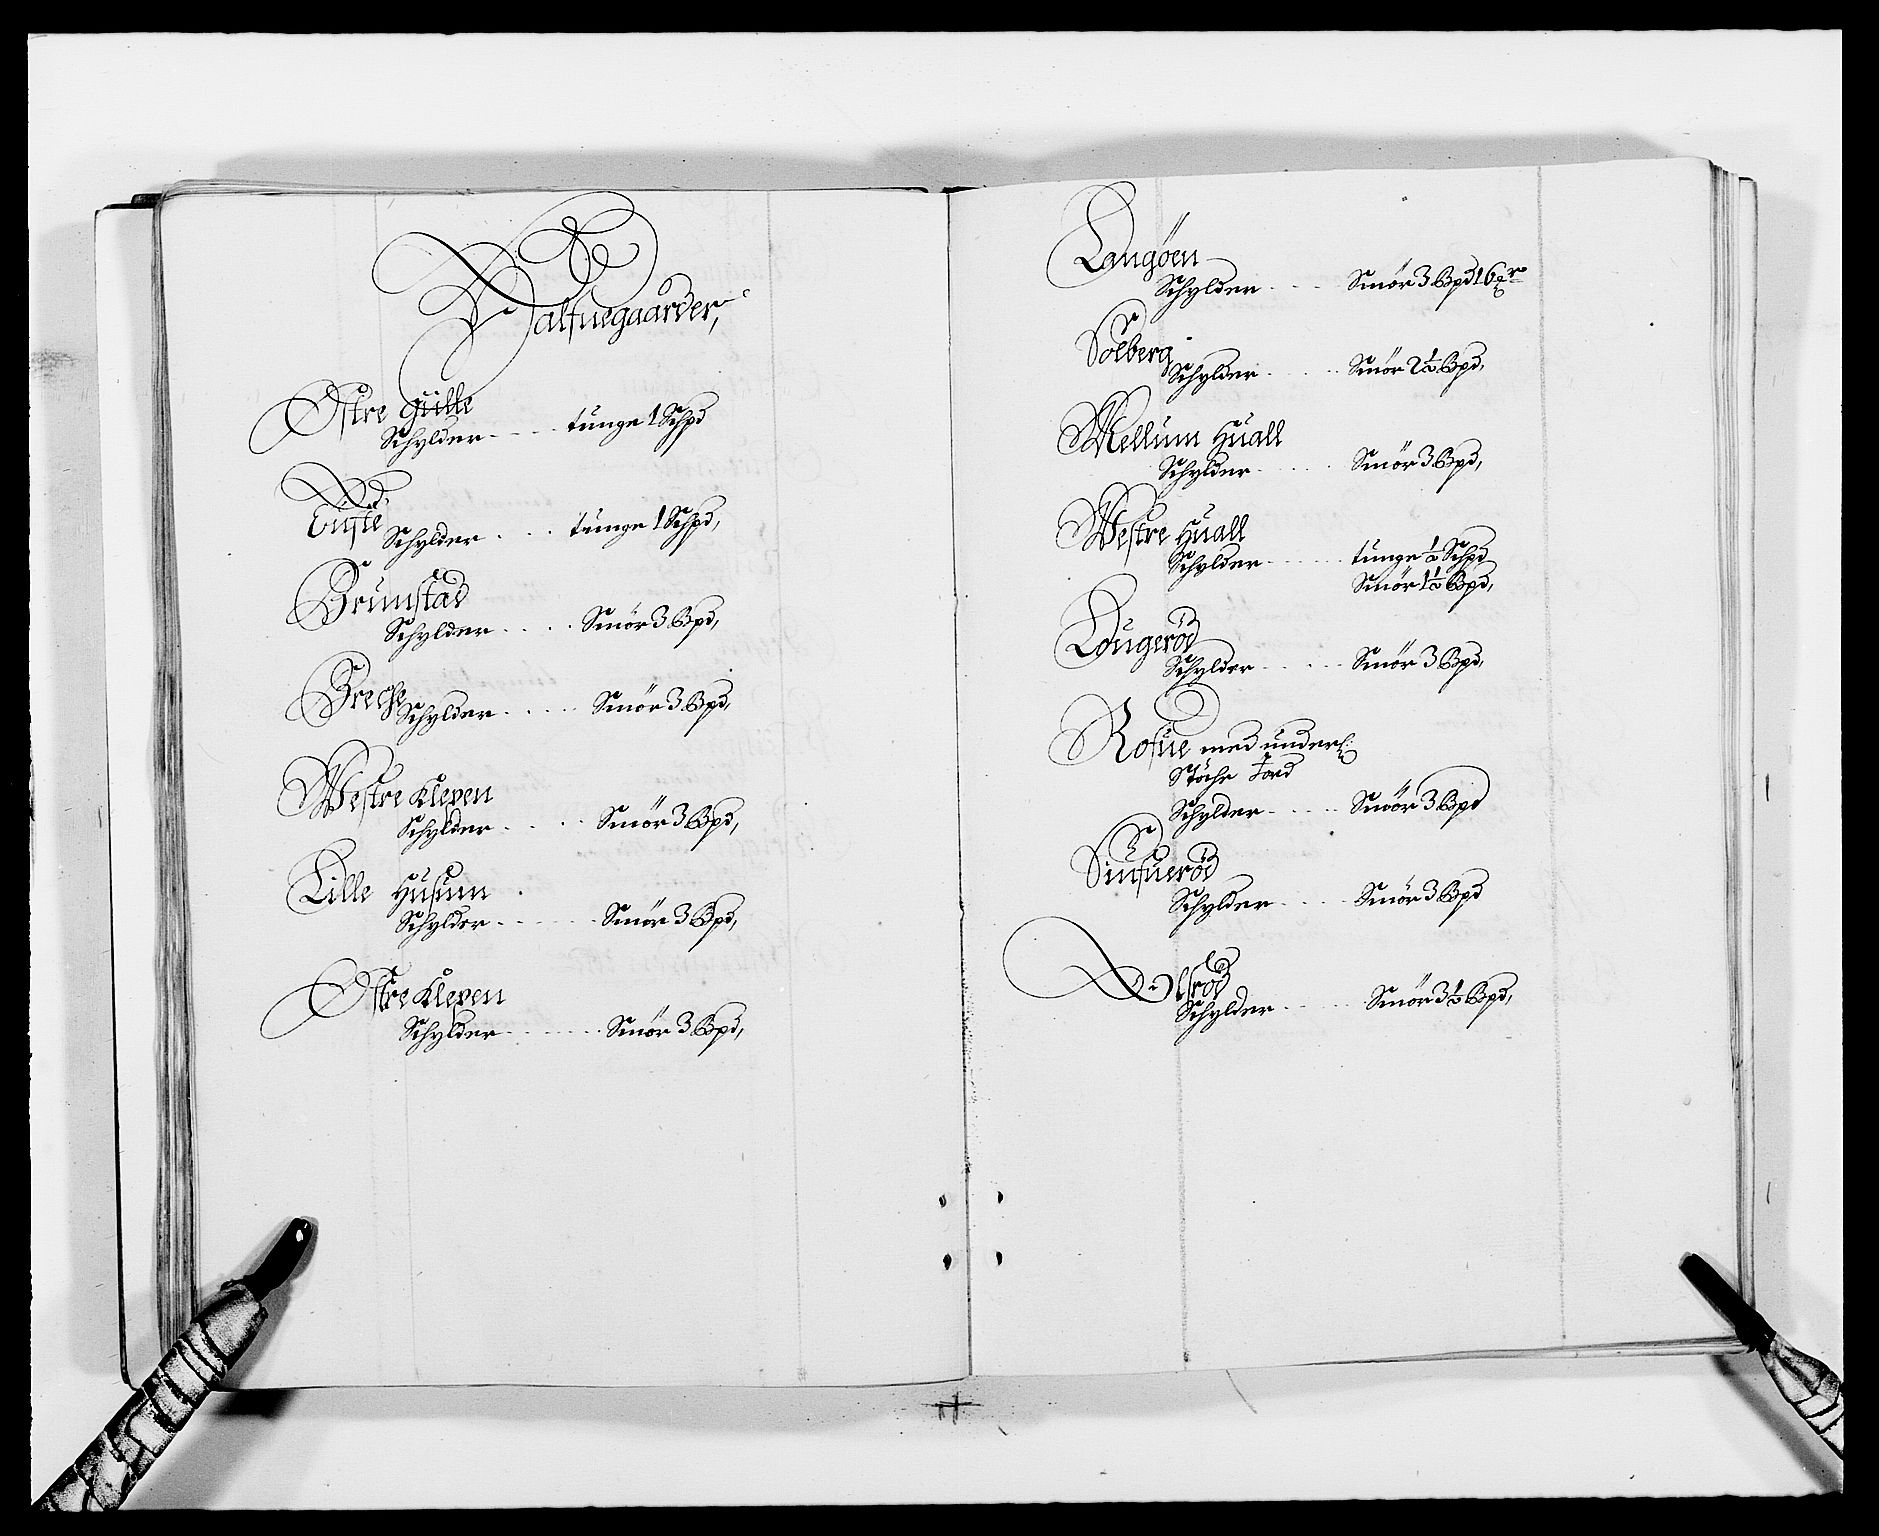 Halfuegaarder,
Østre Gülle
Schylder - - - - tünge 1 Schpd
Tüfte
Schylder . . . . tünge 1 Schpd,
Brünstad
Schylder . . . . Smör 3 Bpd,
Breche
Schylder . . . . . Smör 3 Bpd,
Westre Kleven
Schylder . . . . . Smör 3 Bpd,
Lille Hüsüm
Schylder - - - - - - Smör 3 Bpd,
Østre Kleven
Schylder - - - - - - Smör 3 Bpd,
Langöen
Schylder . - - - Smör 3 Bpd 16
Solberg
Schylder . . . . . Smör 2½ Bpd,
Mellum Hüall
Schylder . . . . . Smör 3 Bpd,
Westre Hüall
Schylder - - - - - - tünge ½ Schpd
Smör 1½ Bpd,
Lougeröd
Schylder - - - - - Smör 3 Bpd,
Rofüe med ünderl:
Stöche Jord
Schylder - - - - - Smör 3 Bpd
Sinfüeröd
Schylder - - - - - Smör 3 Bpd
Olsröd
Schylder - - - - - Smör 3½ Bpd,